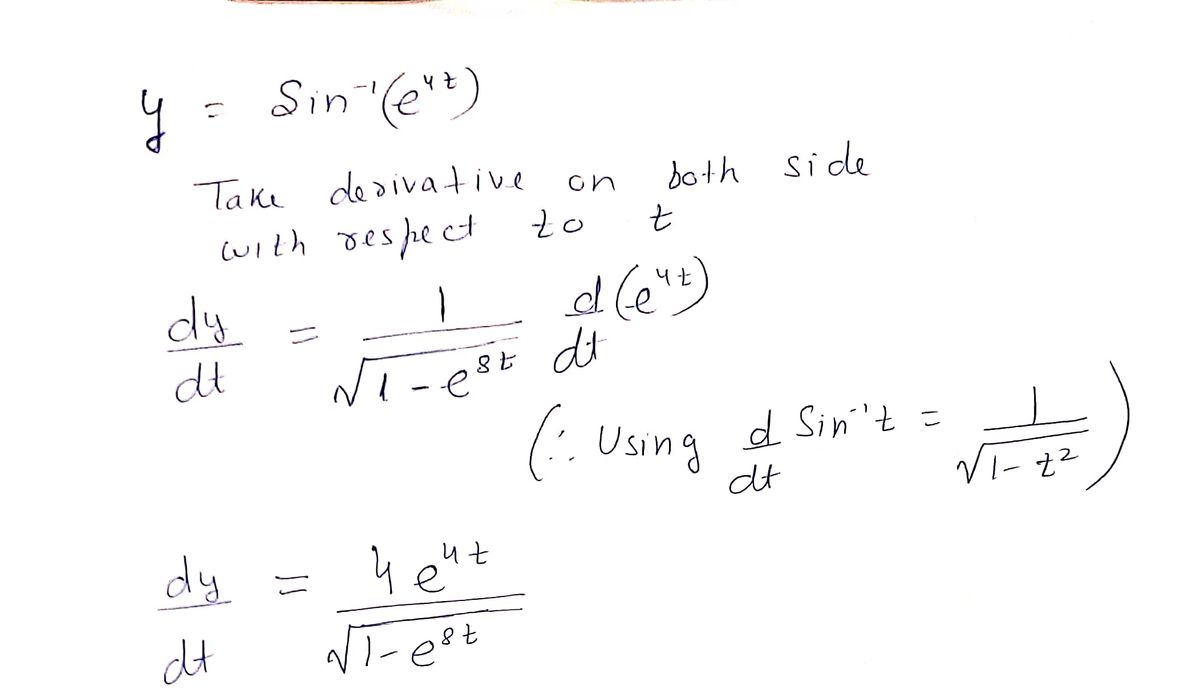 y = Sin⁻¹(e⁴ᵗ)
Take derivative on both side
with respect to t
dy/dt = 1/√(1-e⁸ᵗ) d/dt (e⁴ᵗ)
(∴ Using d/dt Sin⁻¹t = 1/√(1-t²))
dy/dt = 4e⁴ᵗ/√(1-e⁸ᵗ)